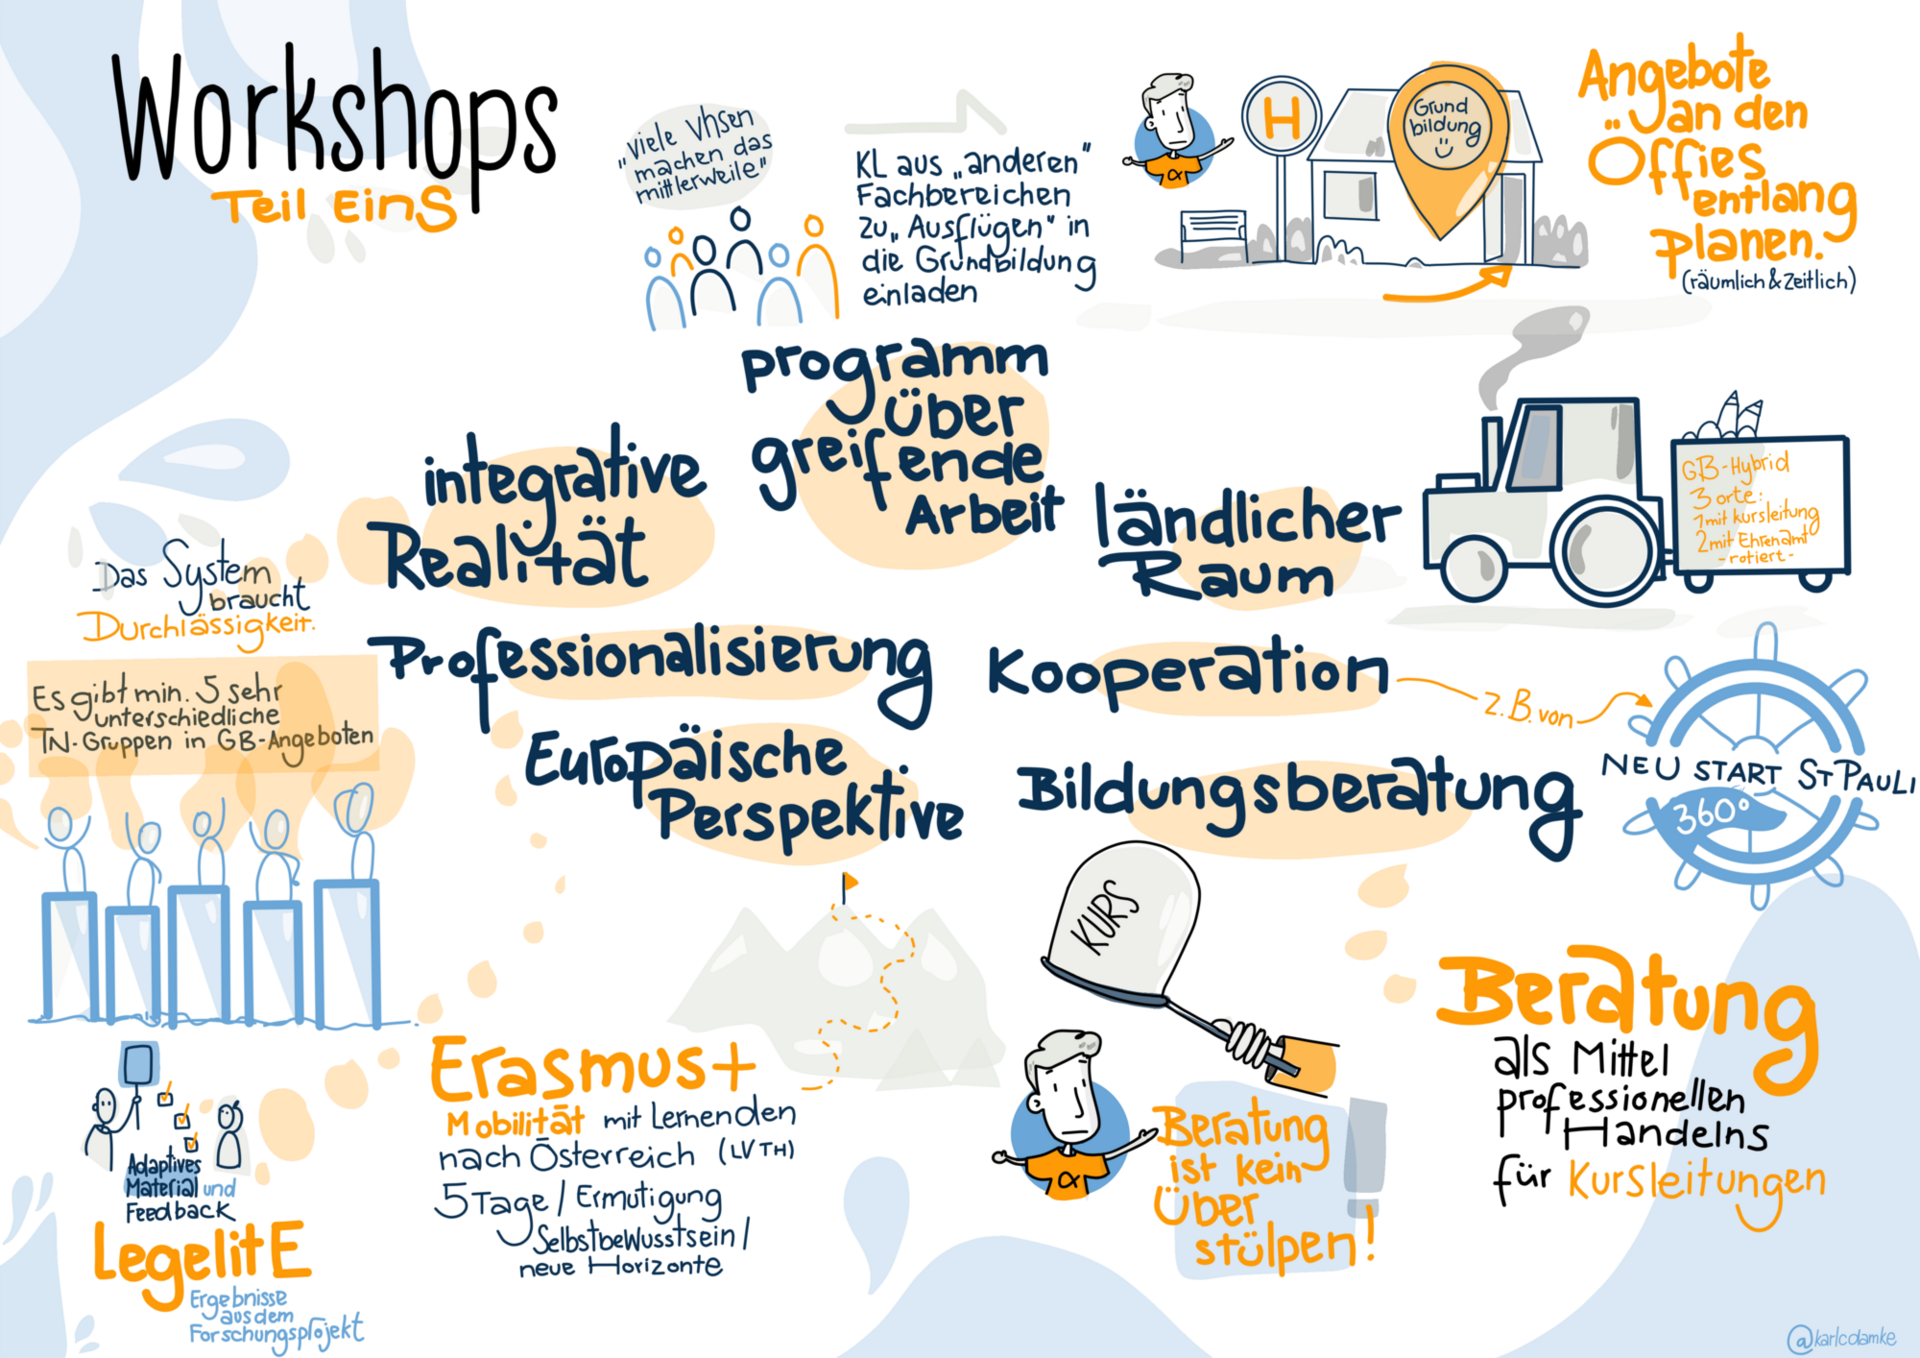 Workshops
Teil EinS
„viele Vhsen
machen das
mittlerweile"
KL aus „anderen"
Fachbereichen
zu „Ausflügen" in
die Grundbildung
einladen
H
Grund
bildung
α
Angebote
an den
Öffies
entlang
planen.
(räumlich & Zeitlich)
programm
über
greifende
Arbeit
integrative
Realität
ländlicher
Raum
GB-Hybrid
3 orte:
1 mit kursleitung
2 mit Ehrenamt
- rotiert -
Das System
braucht
Durchlässigkeit.
Es gibt min. 5 sehr
unterschiedliche
TN-Gruppen in GB-Angeboten
Professionalisierung
Kooperation
z.B. von
NEU START ST PAULI
360°
Europäische
Perspektive
Bildungsberatung
KURS
Adaptives
Material und
Feedback
LegelitE
Ergebnisse
aus dem
Forschungsprojekt
Erasmus+
Mobilität mit Lernenden
nach Österreich (LVTH)
5 Tage / Ermutigung
Selbstbewusstsein /
neue Horizonte
α
Beratung
ist kein
Über
stülpen!
Beratung
als Mittel
professionellen
Handelns
für Kursleitungen
@karlcdamke